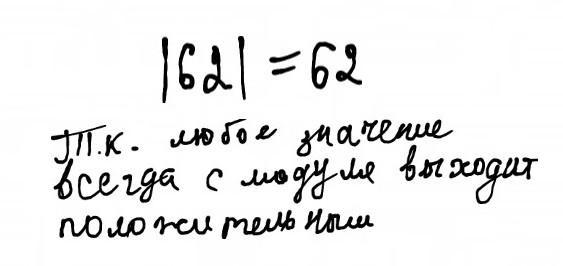 |62| = 62
Т.к. любое значение
всегда с модуля выходит
положительным